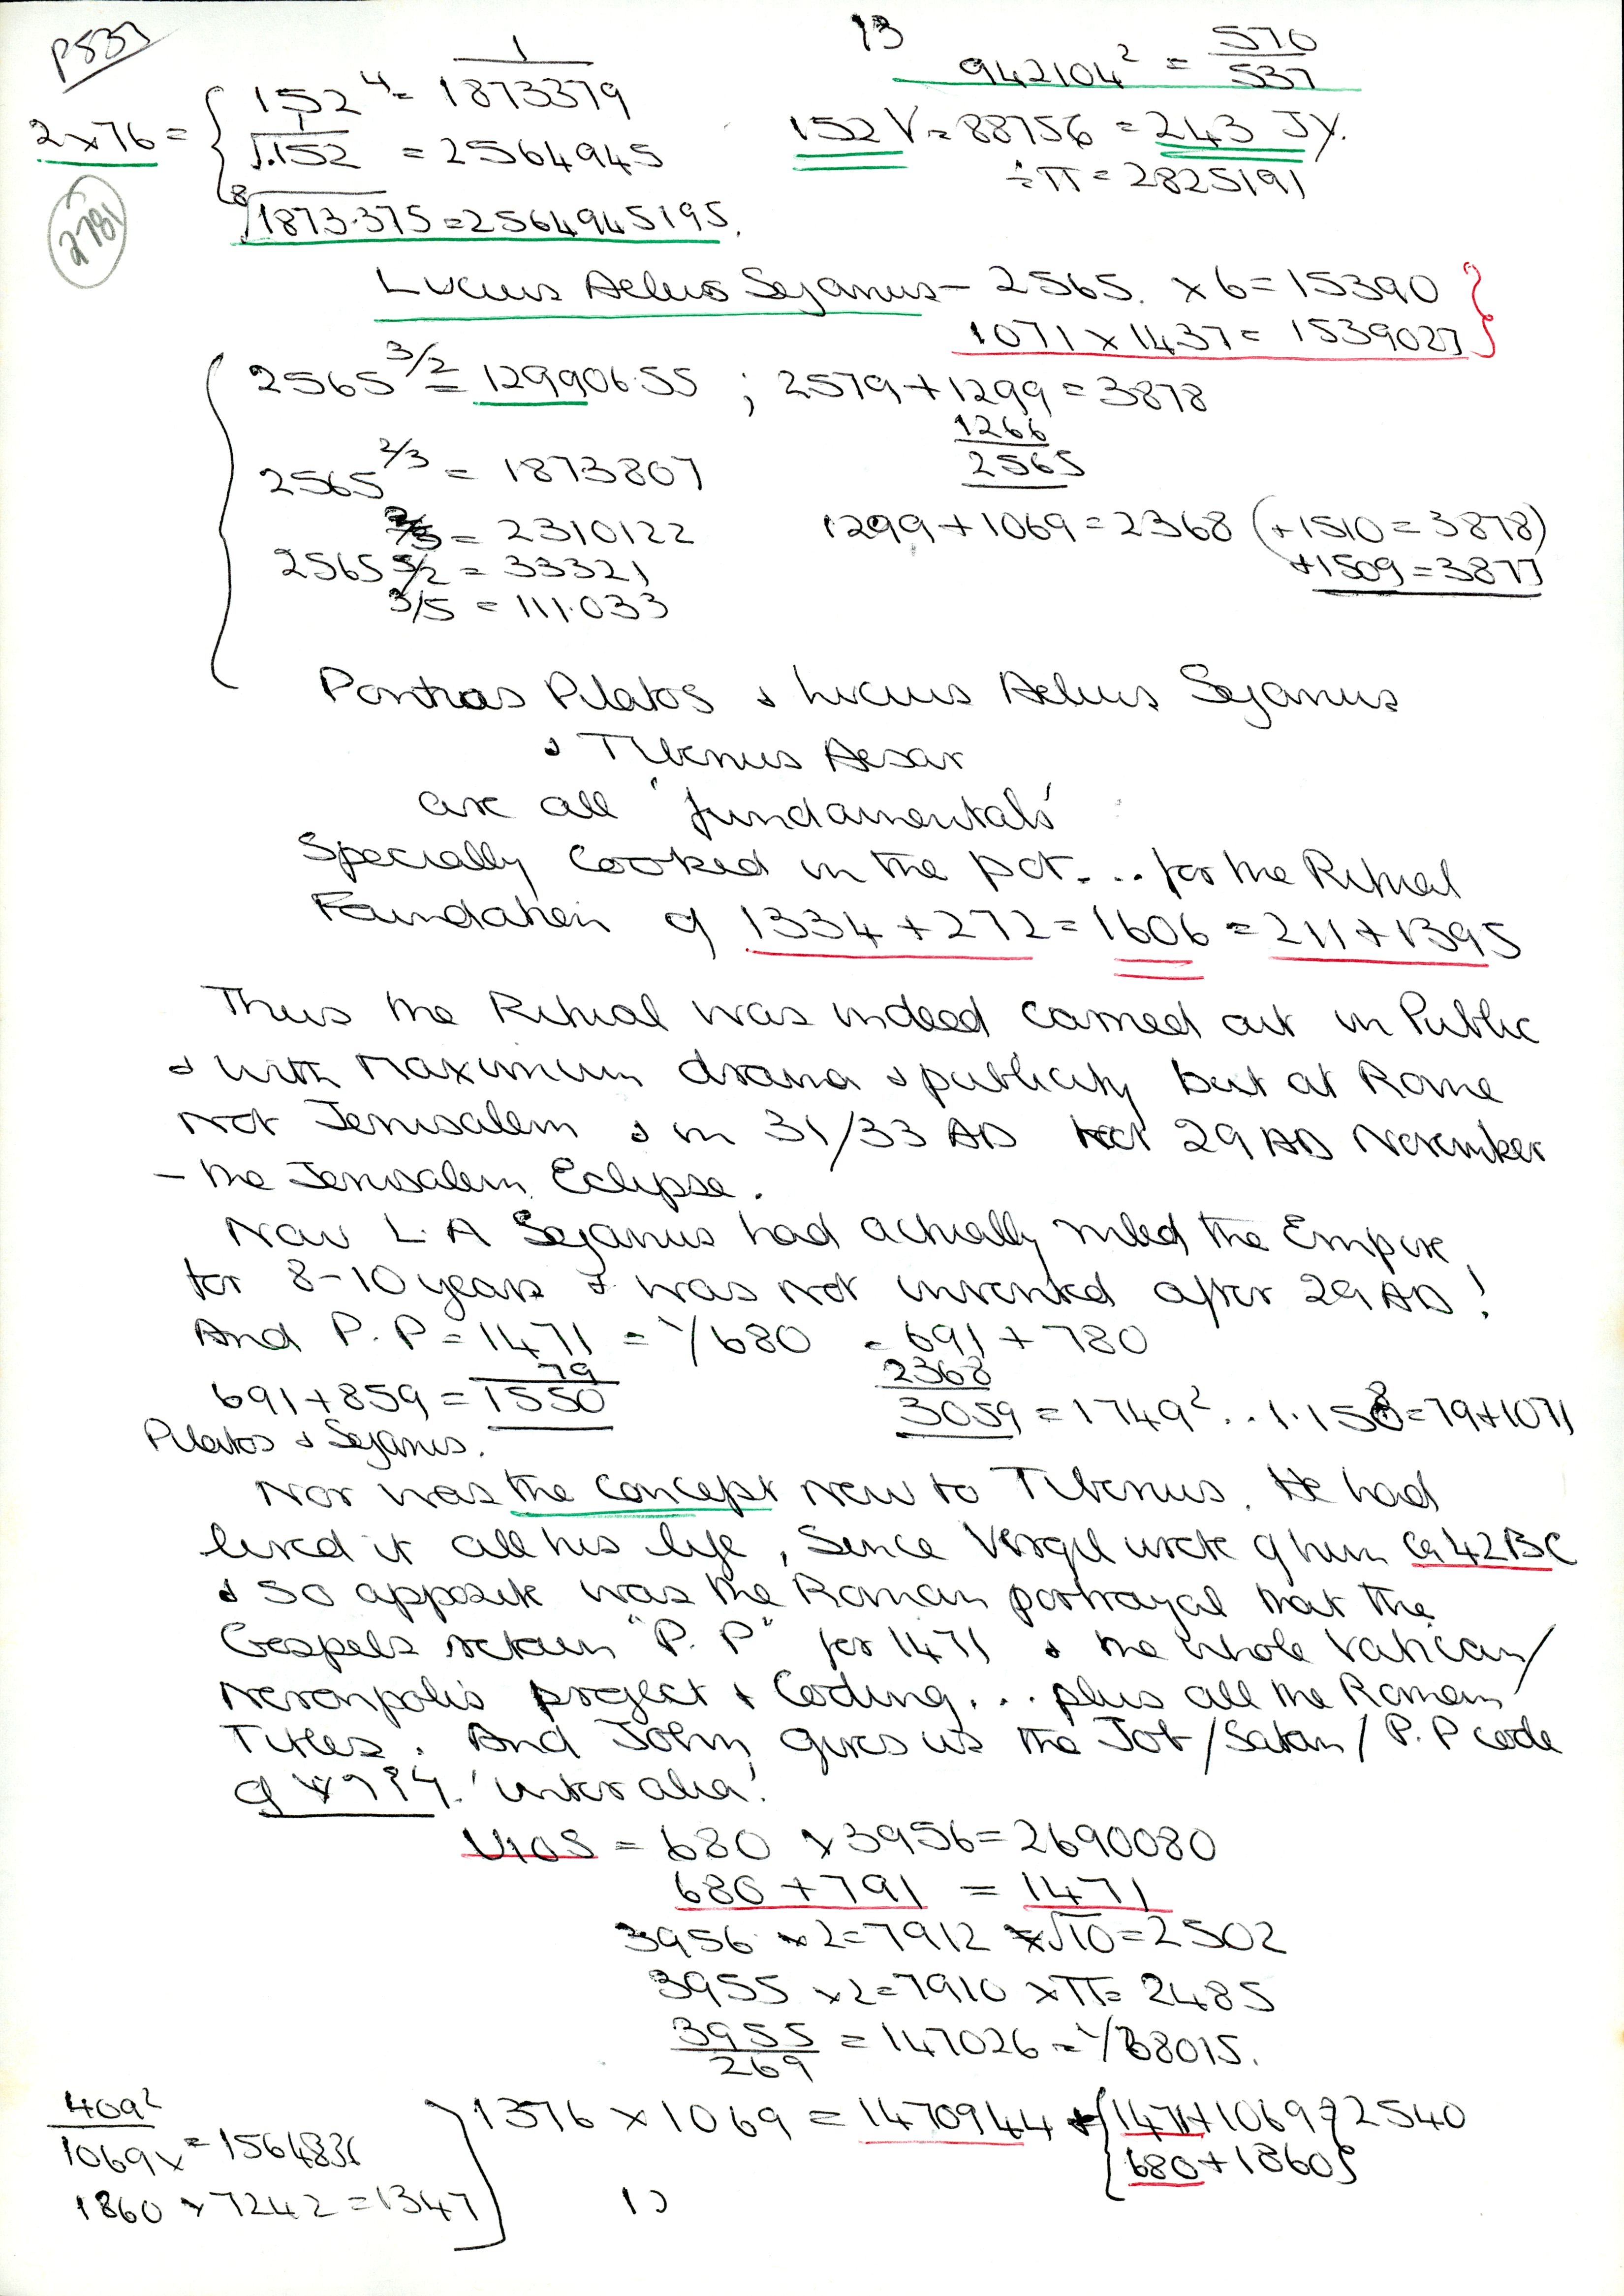 P533
13
942104² = 570/537
2x76 =
152⁴ = 1/1873379
152 V = 88756 = 243 JY.
1/√.152 = 2564945
÷π = 2825191
⁸√1873.375 = 2564945195.
2781
Lucius Aelius Sejanus - 2565. x 6 = 15390
1071 x 1437 = 1539027
2565^3/2 = 12990655 ; 2579 + 1299 = 3878
1266
2565
2565^2/3 = 1873807
= 2310122
1299 + 1069 = 2368 (+1510 = 3878)
+1509 = 3877
2565 5/2 = 33321
3/5 = 111.033
Pontias Pilatos & Lucius Aelius Sejanus
& Tiberius Aesar
are all 'fundamentals'
Specially Cooked in the pot... for the Ritual
Foundation of 1334 + 272 = 1606 = 211 + 1395
Thus the Ritual was indeed carried out in Public
& with maximum drama & publicity but at Rome
not Jerusalem & in 31/33 AD not 29 AD November
- the Jerusalem Eclipse.
Now L. A Sejanus had actually ruled the Empire
for 8-10 years & was not invented after 29 AD!
And P. P = 1471 = 1/680 = 691 + 780
691 + 859 = 1550
79
2368
3059 = 1749² .. 1.150 = 79 + 1071
Pilatos & Sejanus.
Nor was the concept new to Tiberius. He had
lived it all his life, Since Vergil wrote of him Ca 42BC
& so apposite was the Roman portrayal that the
Gospels retain "P. P" for 1471 & the whole Vatican/
Neronpolis project & Coding... plus all the Roman
Titles. And John gives us the Job/Satan/P.P code
of 'inter alia'.
UIOS = 680 x 3956 = 2690080
680 + 791 = 1471
3956 x 2 = 7912 √10 = 2502
3955 x 2 = 7910 x π = 2485
3955/269 = 147026 = 1/68015.
409²/1069 x = 1564836
1860 x 7242 = 1347
1376 x 1069 = 1470944 + 1471 + 1069 } 2540
680 + 1860